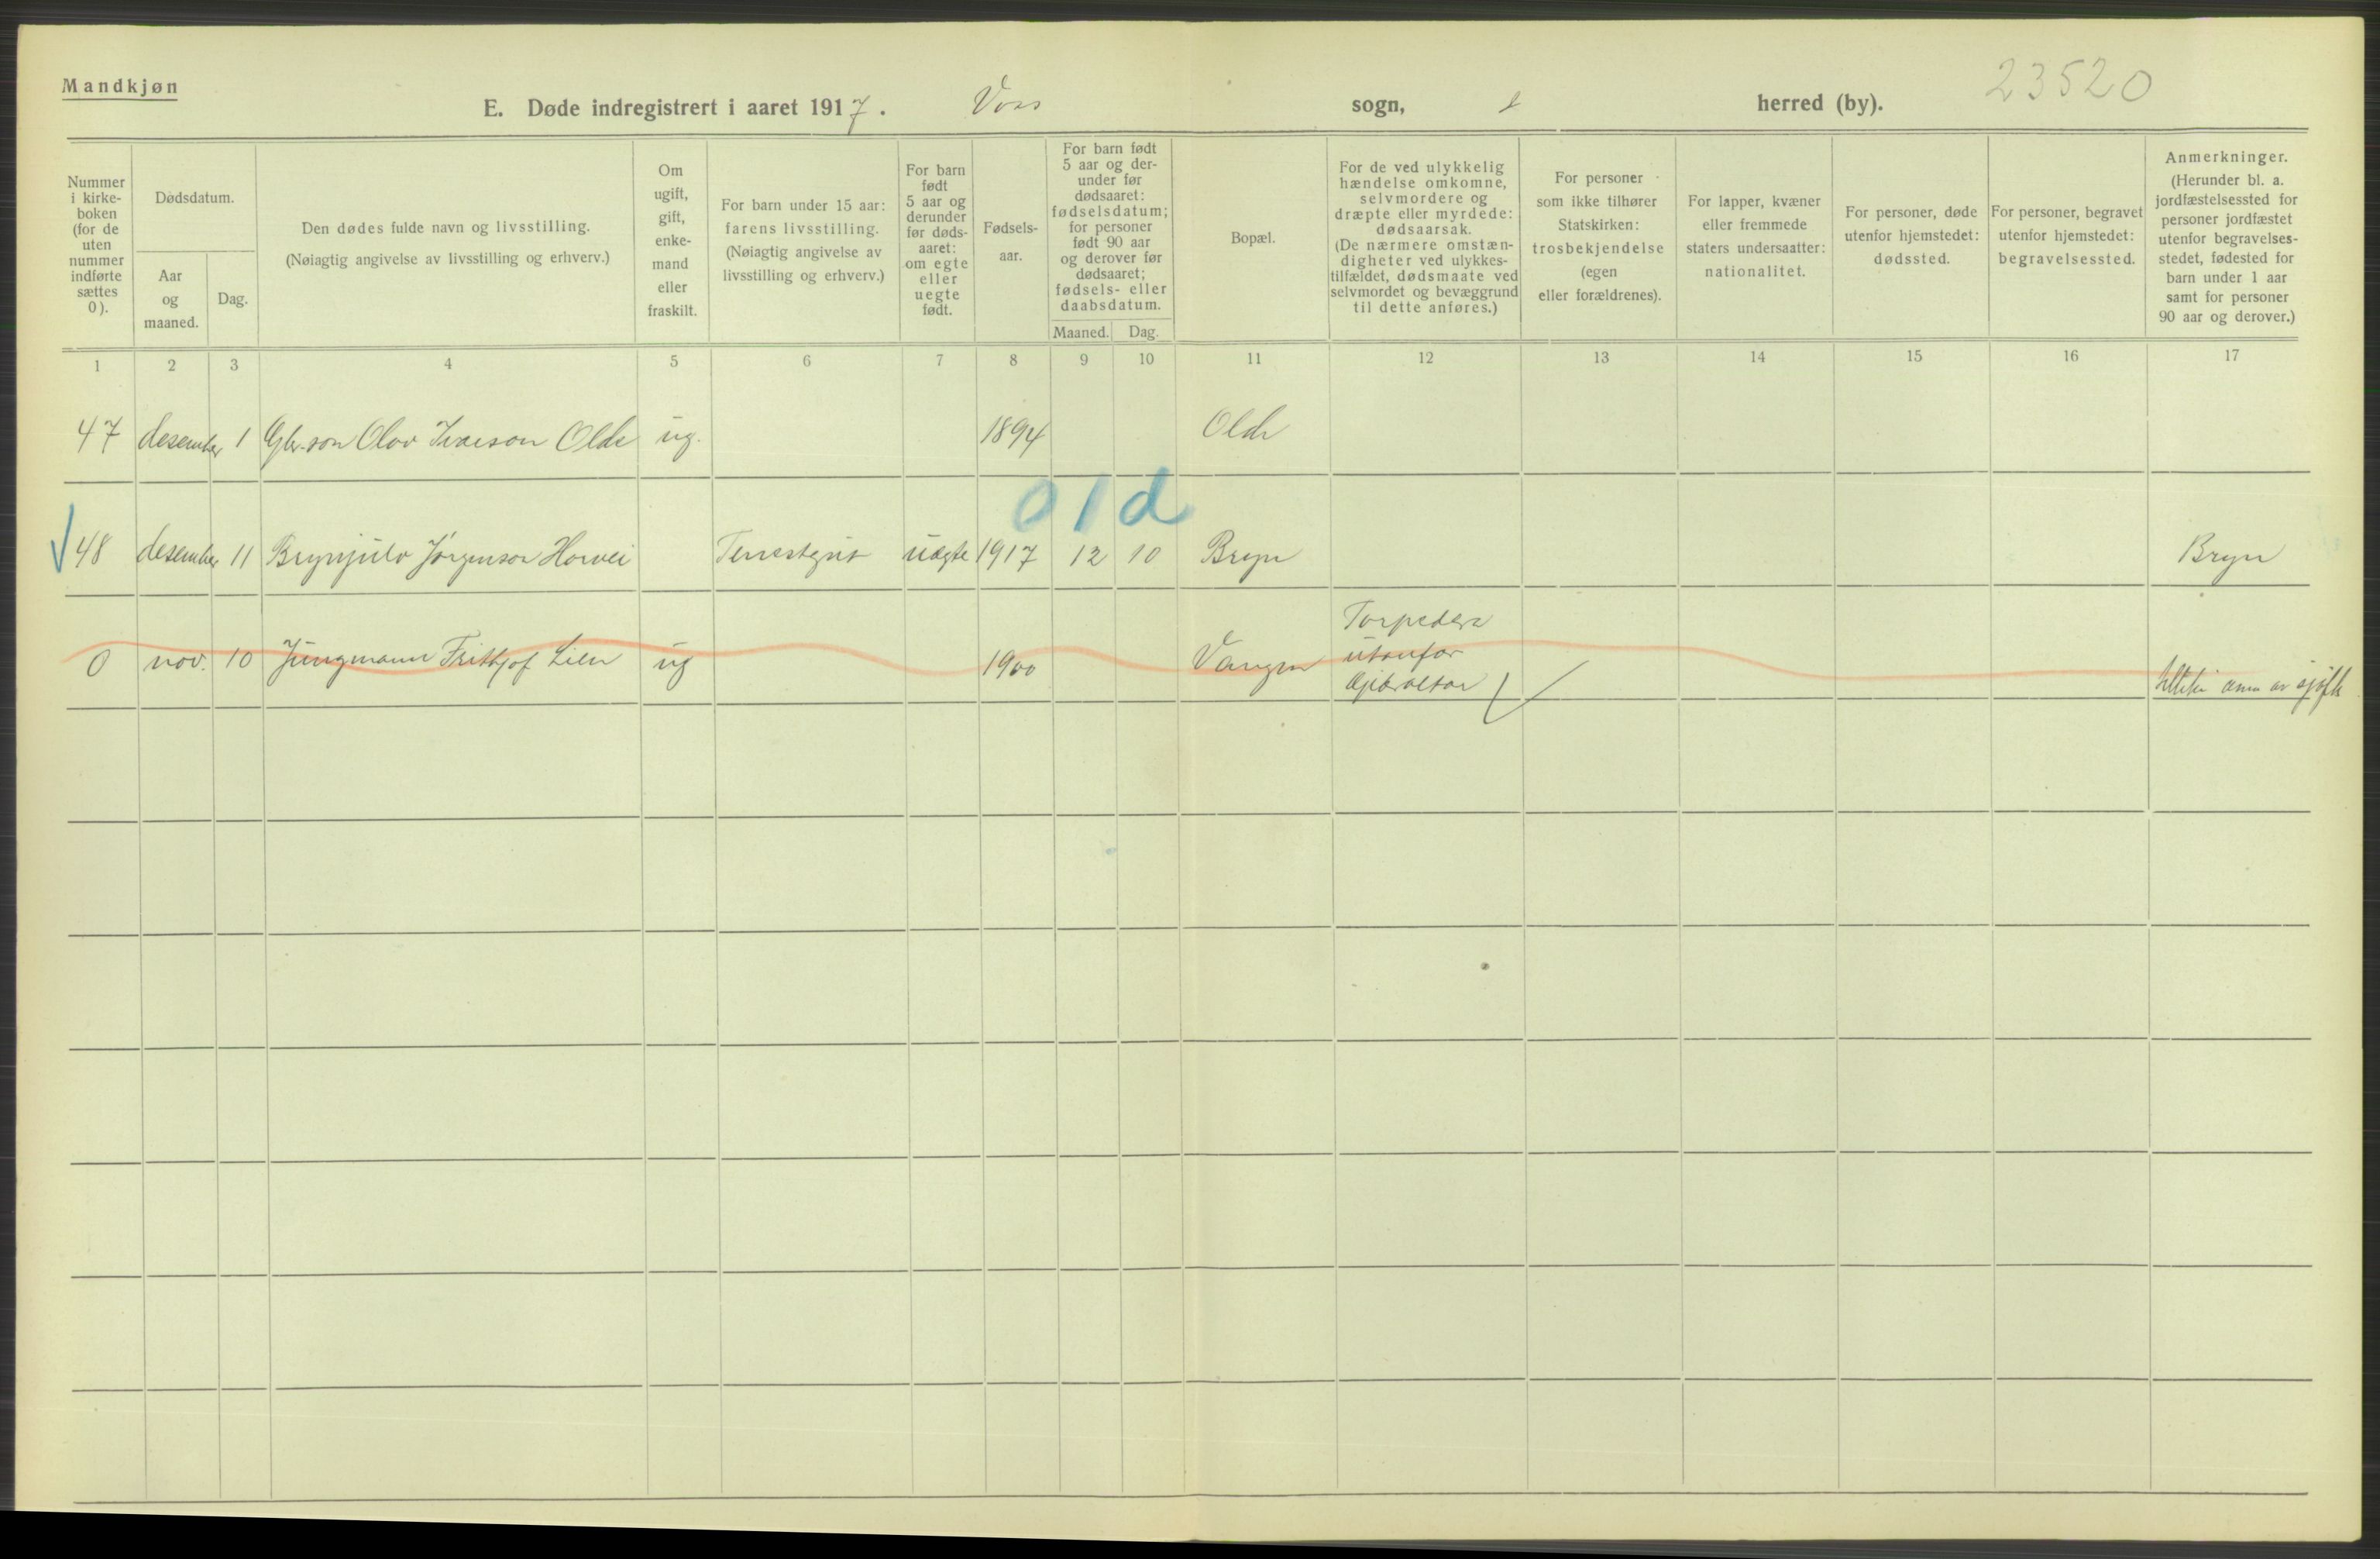 Mandkjøn
23520
E. Døde indregistrert i aaret 1917. Voss sogn, herred (by).
Nummer
i kirke-
boken
(for de
uten
nummer
indførte
sættes
0).
Dødsdatum.
Aar
og
maaned.
Dag.
Den dødes fulde navn og livsstilling.
(Nøiagtig angivelse av livsstilling og erhverv.)
Om
ugift,
gift,
enke-
mand
eller
fraskilt.
For barn under 15 aar:
farens livsstilling.
(Nøiagtig angivelse av
livsstilling og erhverv.)
For barn
født
5 aar og
derunder
før døds-
aaret:
om egte
eller
uegte
født.
Fødsels-
aar.
For barn født
5 aar og der-
under før
dødsaaret:
fødselsdatum;
for personer
født 90 aar
og derover før
dødsaaret;
fødsels- eller
daabsdatum.
Maaned. Dag.
Bopæl.
For de ved ulykkelig
hændelse omkomne,
selvmordere og
dræpte eller myrdede:
dødsaarsak.
(De nærmere omstæn-
digheter ved ulykkes-
tilfældet, dødsmaate ved
selvmordet og bevæggrund
til dette anføres.)
For personer
som ikke tilhører
Statskirken:
trosbekjendelse
(egen
eller forældrenes).
For lapper, kvæner
eller fremmede
staters undersaatter:
nationalitet.
For personer, døde
utenfor hjemstedet:
dødssted.
For personer, begravet
utenfor hjemstedet:
begravelsessted.
Anmerkninger.
(Herunder bl. a.
jordfæstelsessted for
personer jordfæstet
utenfor begravelses-
stedet, fødested for
barn under 1 aar
samt for personer
90 aar og derover.)
1 2 3 4 5 6 7 8 9 10 11 12 13 14 15 16 17
47 desember 1 Gbr.son Olav Ivarson Olde ug. 1894 Olde
0 1 d
48 desember 11 Brynjulv Jørgenson Horvei Tenestegut uægte 1917 12 10 Bryn Bryn
0 nov. 10 Jungmann Frithjof Lien ug 1900 Vangen Torpedera
utanfor
Gibraltar